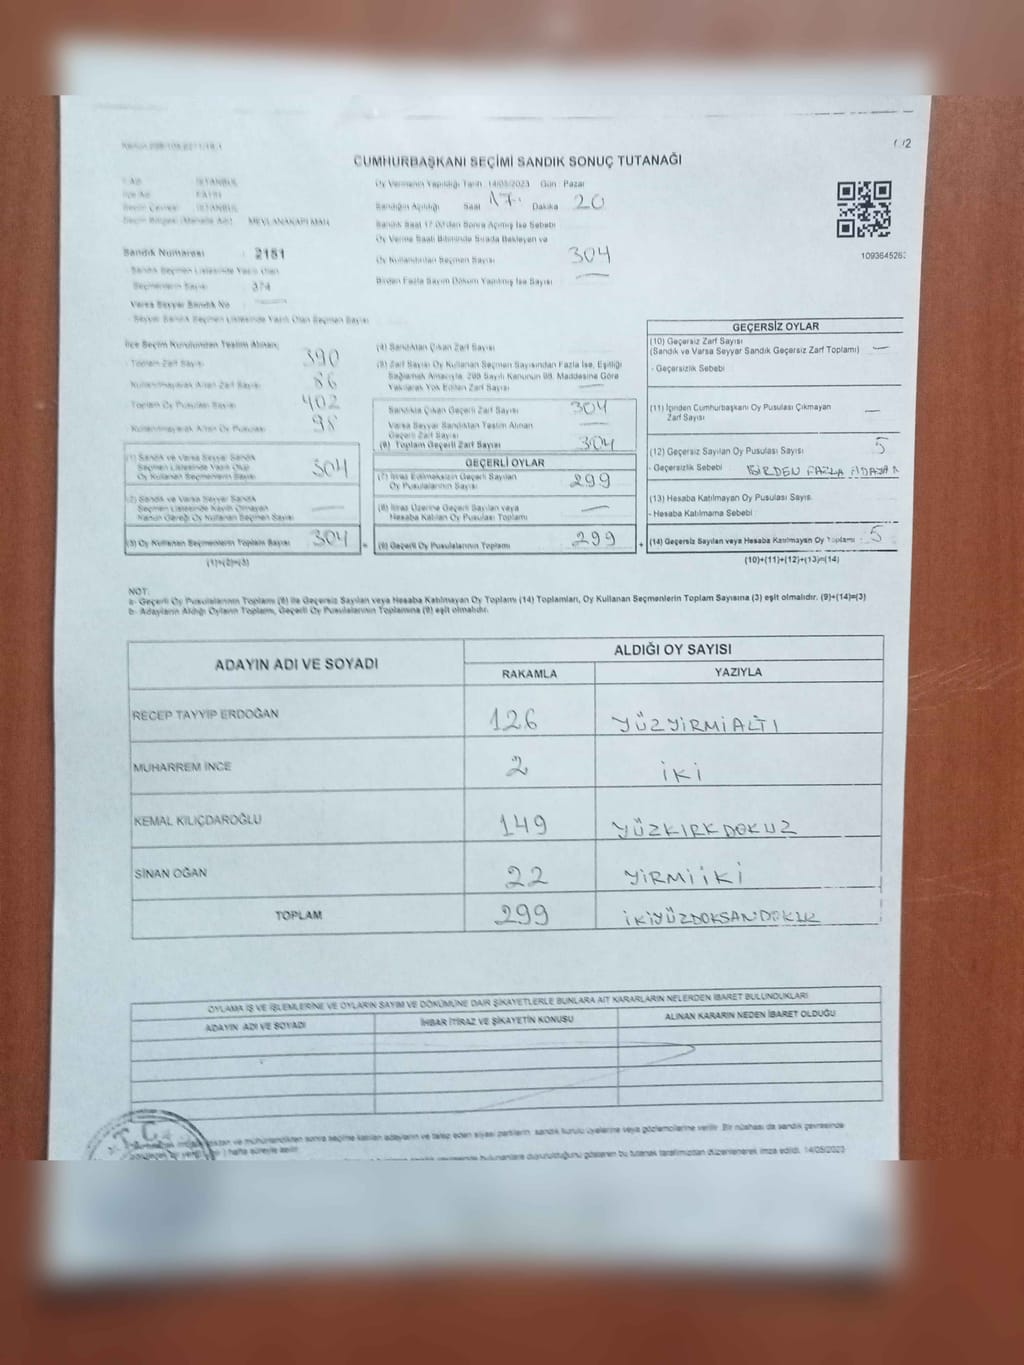 1 / 2
CUMHURBAŞKANI SEÇİMİ SANDIK SONUÇ TUTANAĞI
İSTANBUL
FATİH
İSTANBUL
MEVLANAKAPI MAH.
Oy Vermenin Yapıldığı Tarih 14/05/2023 Gün Pazar
Sandığın Açıldığı Saat 17. Dakika 20
Sandık Saat 17.00'dan Sonra Açılmış İse Sebebi
Oy Verme Saati Bitiminde Sırada Bekleyen ve
Oy Kullandırılan Seçmen Sayısı 304
Birden Fazla Sayım Döküm Yapılmış İse Sayısı —
1093645263
Sandık Numarası : 2151
Sandık Seçmen Listesinde Yazılı Olan
Seçmenlerin Sayısı 374
Varsa Seyyar Sandık No —
Seyyar Sandık Seçmen Listesinde Yazılı Olan Seçmen Sayısı
İlçe Seçim Kurulundan Teslim Alınan;
Toplam Zarf Sayısı 390
Kullanılmayarak Artan Zarf Sayısı 86
Toplam Oy Pusulası Sayısı 402
Kullanılmayarak Artan Oy Pusulası 98
(1) Sandık ve Varsa Seyyar Sandık
Seçmen Listesinde Yazılı Olup
Oy Kullanan Seçmenlerin Sayısı 304
(2) Sandık ve Varsa Seyyar Sandık
Seçmen Listesinde Kayıtlı Olmayan
Kanun Gereği Oy Kullanan Seçmen Sayısı —
(3) Oy Kullanan Seçmenlerin Toplam Sayısı 304
(1)+(2)=(3)
(4) Sandıktan Çıkan Zarf Sayısı
(5) Zarf Sayısı Oy Kullanan Seçmen Sayısından Fazla İse, Eşitliği
Sağlamak Amacıyla, 298 Sayılı Kanunun 98. Maddesine Göre
Yakılarak Yok Edilen Zarf Sayısı —
Sandıkta Çıkan Geçerli Zarf Sayısı 304
Varsa Seyyar Sandıktan Teslim Alınan
Geçerli Zarf Sayısı —
(6) Toplam Geçerli Zarf Sayısı 304
GEÇERLİ OYLAR
(7) İtiraz Edilmeksizin Geçerli Sayılan
Oy Pusulalarının Sayısı 299
(8) İtiraz Üzerine Geçerli Sayılan veya
Hesaba Katılan Oy Pusulası Toplamı —
(9) Geçerli Oy Pusulalarının Toplamı 299
GEÇERSİZ OYLAR
(10) Geçersiz Zarf Sayısı
(Sandık ve Varsa Seyyar Sandık Geçersiz Zarf Toplamı) —
- Geçersizlik Sebebi
(11) İçinden Cumhurbaşkanı Oy Pusulası Çıkmayan
Zarf Sayısı —
(12) Geçersiz Sayılan Oy Pusulası Sayısı 5
- Geçersizlik Sebebi BİRDEN FAZLA ADAYA
(13) Hesaba Katılmayan Oy Pusulası Sayısı
- Hesaba Katılmama Sebebi
(14) Geçersiz Sayılan veya Hesaba Katılmayan Oy Toplamı 5
(10)+(11)+(12)+(13)=(14)
NOT:
a- Geçerli Oy Pusulalarının Toplamı (9) ile Geçersiz Sayılan veya Hesaba Katılmayan Oy Toplamı (14) Toplamları, Oy Kullanan Seçmenlerin Toplam Sayısına (3) eşit olmalıdır. (9)+(14)=(3)
b- Adayların Aldığı Oyların Toplamı, Geçerli Oy Pusulalarının Toplamına (9) eşit olmalıdır.
ADAYIN ADI VE SOYADI ALDIĞI OY SAYISI
RAKAMLA YAZIYLA
RECEP TAYYİP ERDOĞAN 126 YÜZYİRMİALTI
MUHARREM İNCE 2 İKİ
KEMAL KILIÇDAROĞLU 149 YÜZKIRKDOKUZ
SİNAN OĞAN 22 YİRMİİKİ
TOPLAM 299 İKİYÜZDOKSANDOKUZ
OYLAMA İŞ VE İŞLEMLERİNE VE OYLARIN SAYIM VE DÖKÜMÜNE DAİR ŞİKAYETLERLE BUNLARA AİT KARARLARIN NELERDEN İBARET BULUNDUKLARI
ADAYIN ADI VE SOYADI İHBAR İTİRAZ VE ŞİKAYETİN KONUSU ALINAN KARARIN NEDEN İBARET OLDUĞU
T.C.
ve mühürlendikten sonra seçime katılan adayların ve talep eden siyasi partilerin sandık kurulu üyelerine veya gözlemcilerine verilir. Bir nüshası da sandık çevresinde
hafta süreyle asılır.
bulunanlara duyurulduğunu gösteren bu tutanak tarafımızdan düzenlenerek imza edildi. 14/05/2023